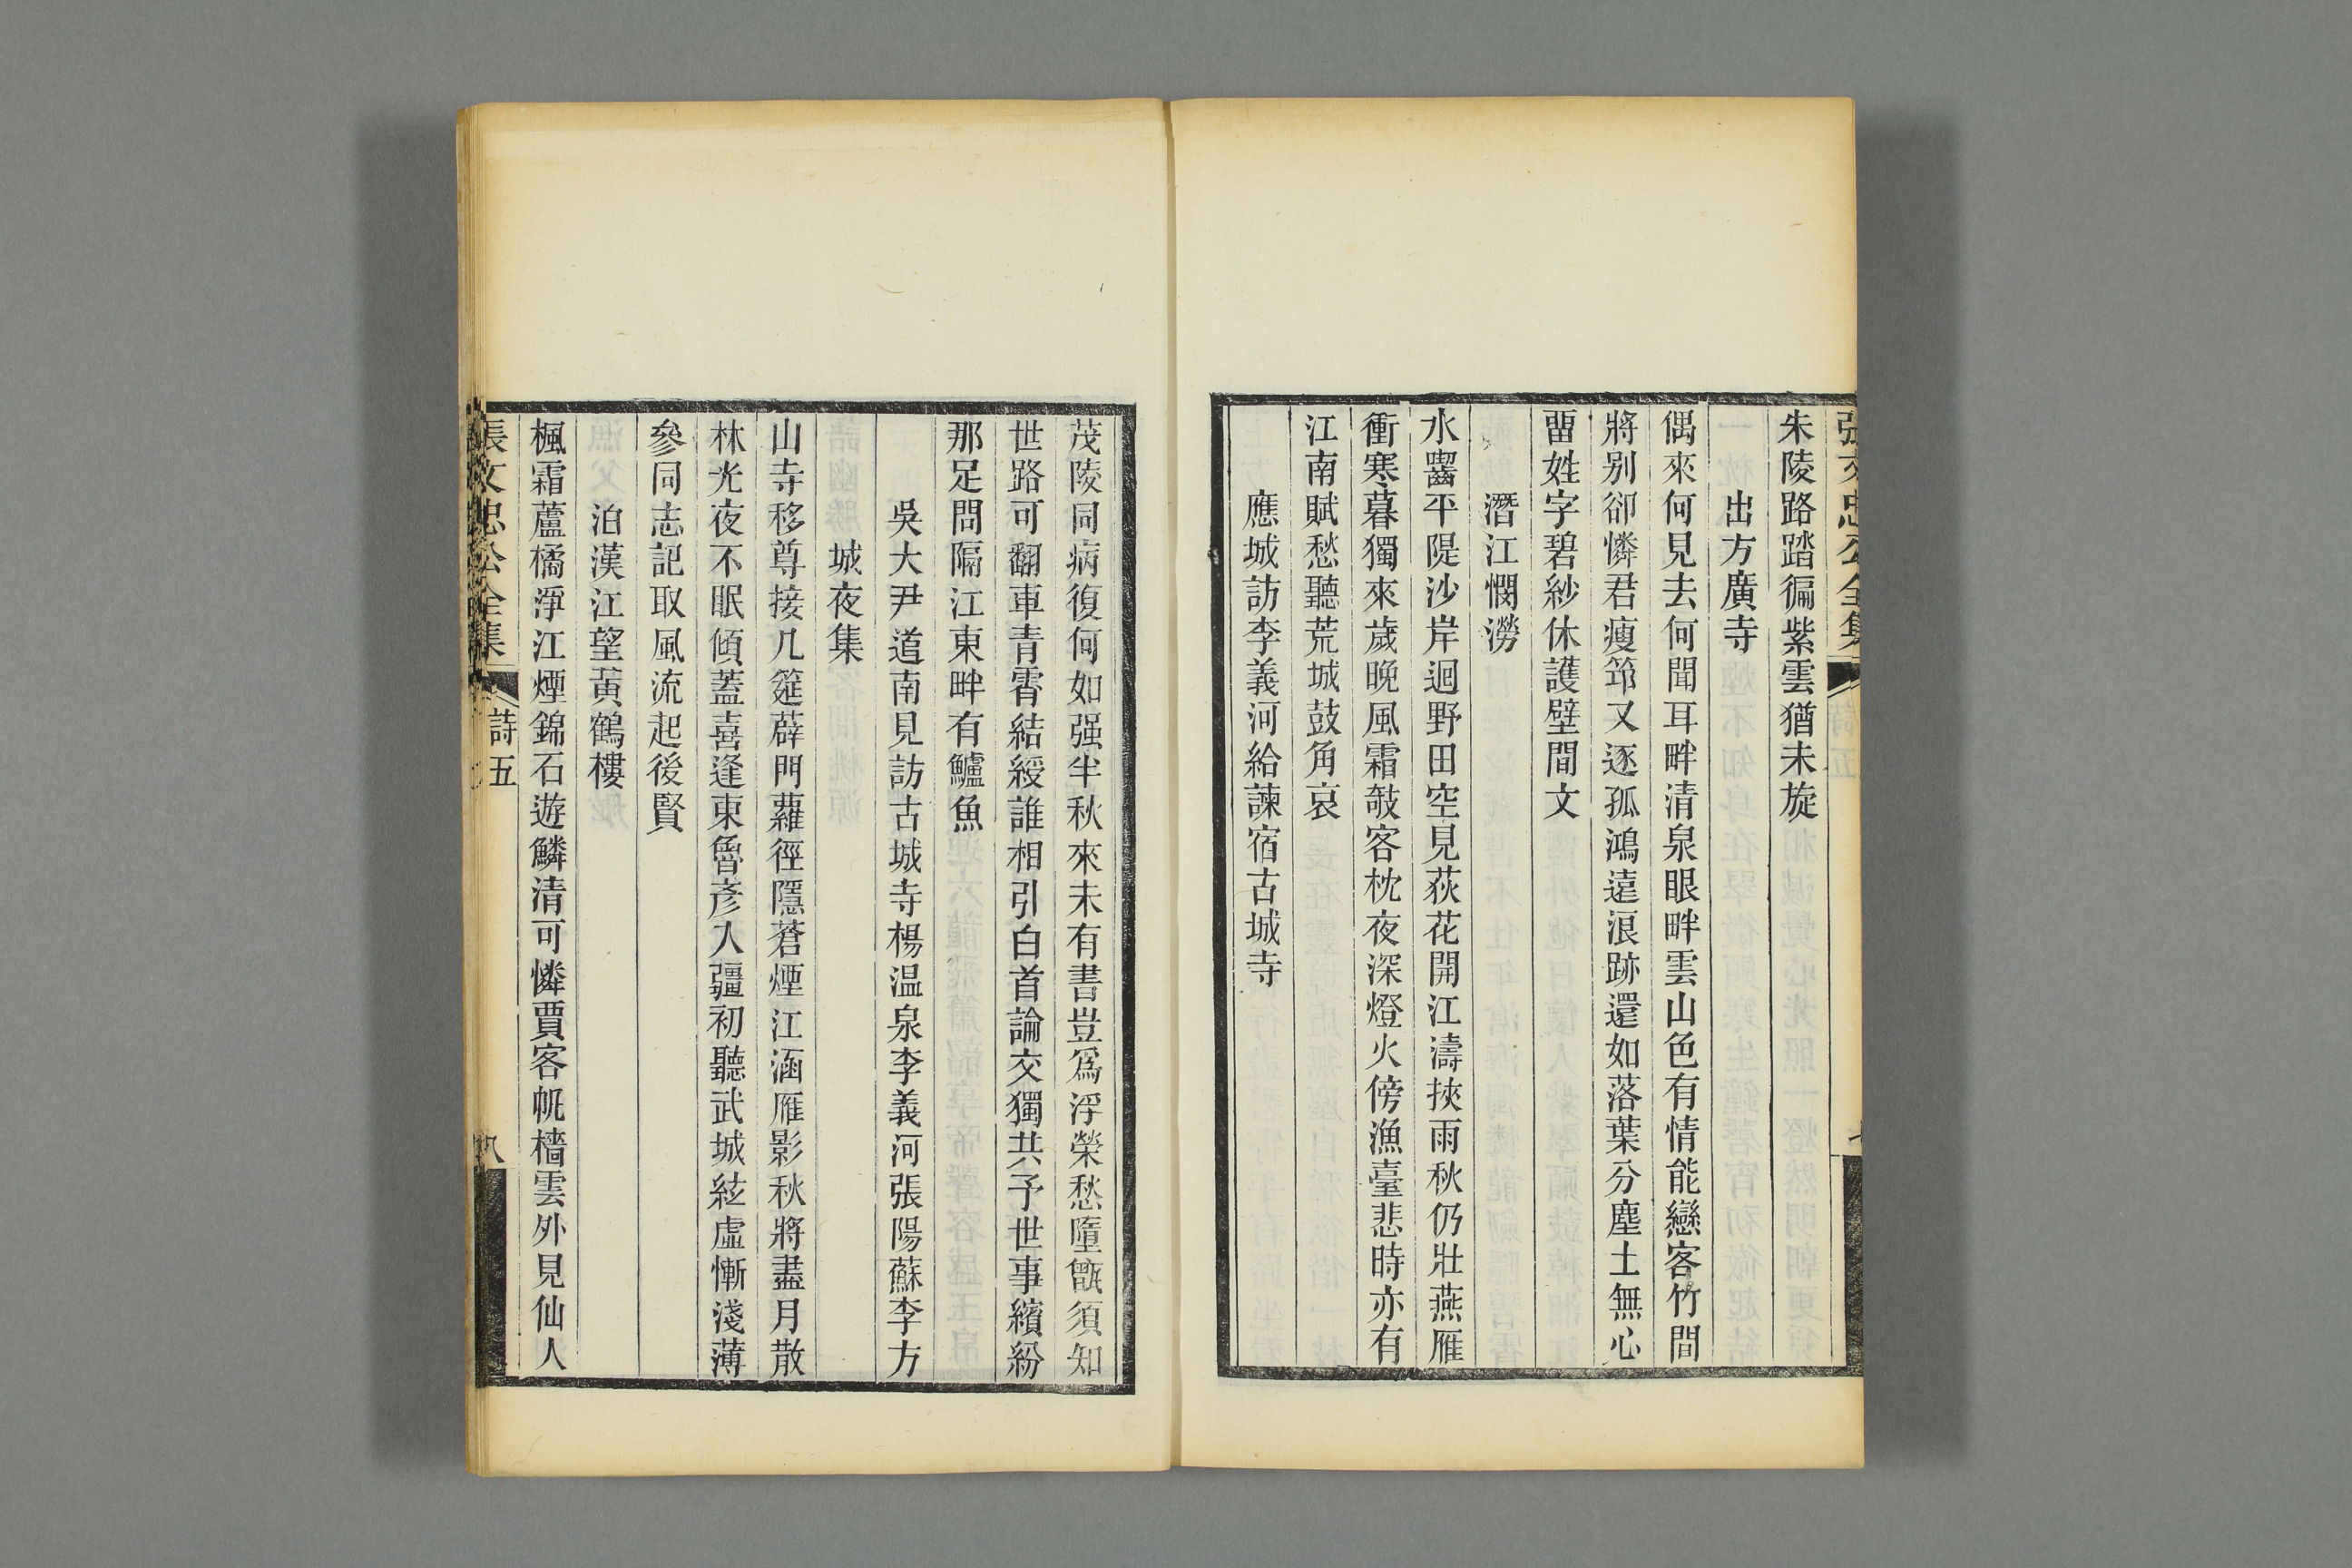 張文忠公全集
朱陵路踏徧紫雲猶未旋
出方廣寺
偶來何見去何聞耳畔清泉眼畔雲山色有情能戀客竹間
將别卻憐君瘦笻又逐孤鴻遠浪跡還如落葉分塵土無心
畱姓字碧紗休護壁間文
潛江憫澇
水齧平隄沙岸迴野田空見荻花開江濤挾雨秋仍壯燕雁
衝寒暮獨來歲晚風霜攲客枕夜深燈火傍漁臺悲時亦有
江南賦愁聽荒城鼓角哀
應城訪李義河給諫宿古城寺
茂陵同病復何如强半秋來未有書豈爲浮榮愁墮甑須知
世路可翻車青霄結綬誰相引白首論交獨共予世事繽紛
那足問隔江東畔有鱸魚
吳大尹道南見訪古城寺楊温泉李義河張陽蘇李方
城夜集
山寺移尊接几筵薜門蘿徑隱蒼煙江涵雁影秋將盡月散
林光夜不眠傾蓋喜逢東魯彥人疆初聽武城絃虛慚淺薄
參同志記取風流起後賢
泊漢江望黃鶴樓
楓霜蘆橘淨江煙錦石遊鱗清可憐賈客帆檣雲外見仙人
張文忠公全集
詩五
八